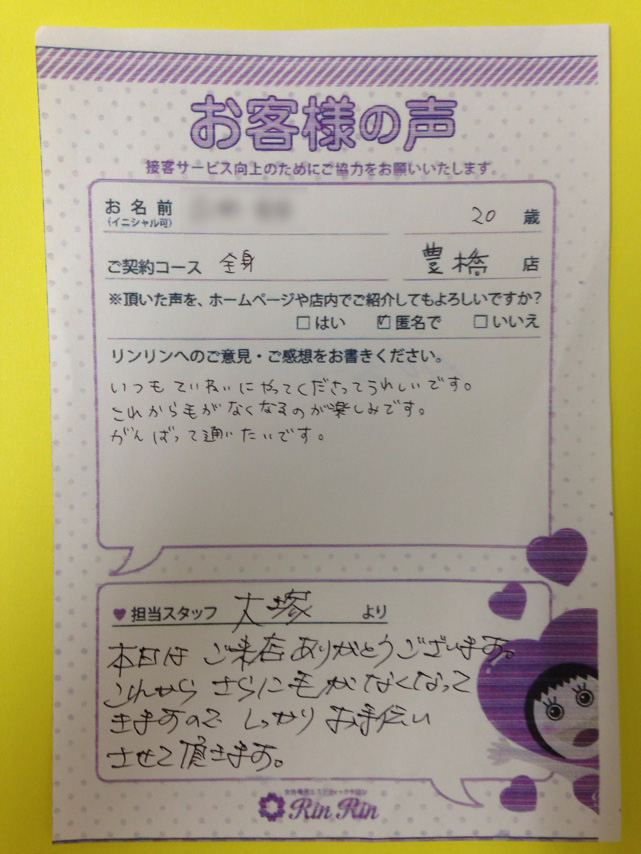 お客様の声
接客サービス向上のためにご協力をお願いいたします。
お名前
(イニシャル可)
20 歳
ご契約コース 全身
豊橋 店
※頂いた声を、ホームページや店内でご紹介してもよろしいですか?
□はい ☑匿名で □いいえ
リンリンへのご意見・ご感想をお書きください。
いつもていねいにやってくださってうれしいです。
これから毛がなくなるのが楽しみです。
がんばって通いたいです。
♥担当スタッフ 大塚 より
本日は ご来店ありがとうございます。
これから さらに毛がなくなって
きますので しっかり お手伝い
させて頂きます。
Rin Rin